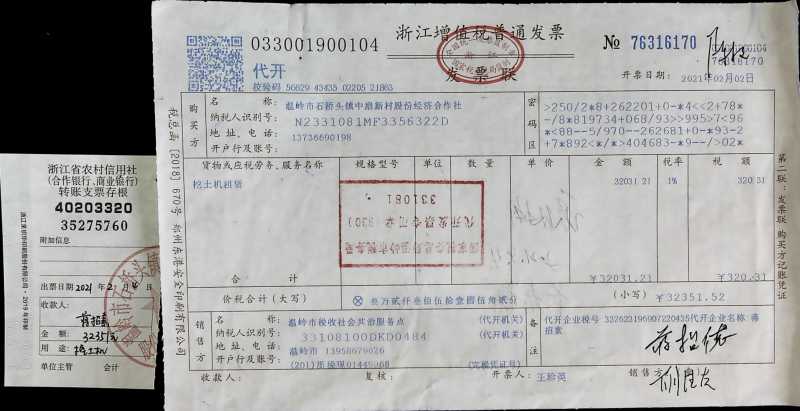 033001900104
浙江增值税普通发票
№ 76316170
033001900104
76316170
代开
发票联
校验码 56629 43435 02205 21863
开票日期: 2021年02月02日
购买方
名 称: 温岭市石桥头镇中扇新村股份经济合作社
纳税人识别号: N2331081MF3356322D
地址、电话: 13736690198
开户行及账号:
密码区
>250/2*8+262201+0-*4<<2+78*
-/8*819734+068/93>>995>7<96
*<88--5/970--262681+0-*93-2
+7*892<*/>*404683-*9--/>02*
货物或应税劳务、服务名称 规格型号 单位 数量 单价 金额 税率 税额
挖土机租赁 32031.21 1% 320.31
331081
代开发票专用章
合计 ¥32031.21 ¥320.31
价税合计(大写) ⊗ 叁万贰仟叁佰伍拾壹圆伍角贰分 (小写) ¥32351.52
销售方
名 称: 温岭市税收社会共治服务点 (代开机关)
纳税人识别号: 33108100DKD0484 (代开机关)
地址、电话: 温岭市 13958679026
开户行及账号: (完税凭证号)
备注
代开企业税号 332622196907220435代开企业名称:蒋招素
收款人: 复核: 开票人: 王玲英 销售方
税总函〔2018〕670号 杭州东港安全印刷有限公司
第二联:发票联 购买方记账凭证
浙江省农村信用社
(合作银行、商业银行)
转账支票存根
40203320
35275760
附加信息
出票日期 2021年2月
收款人:
金额:
用途: 挖土机
单位主管 会计